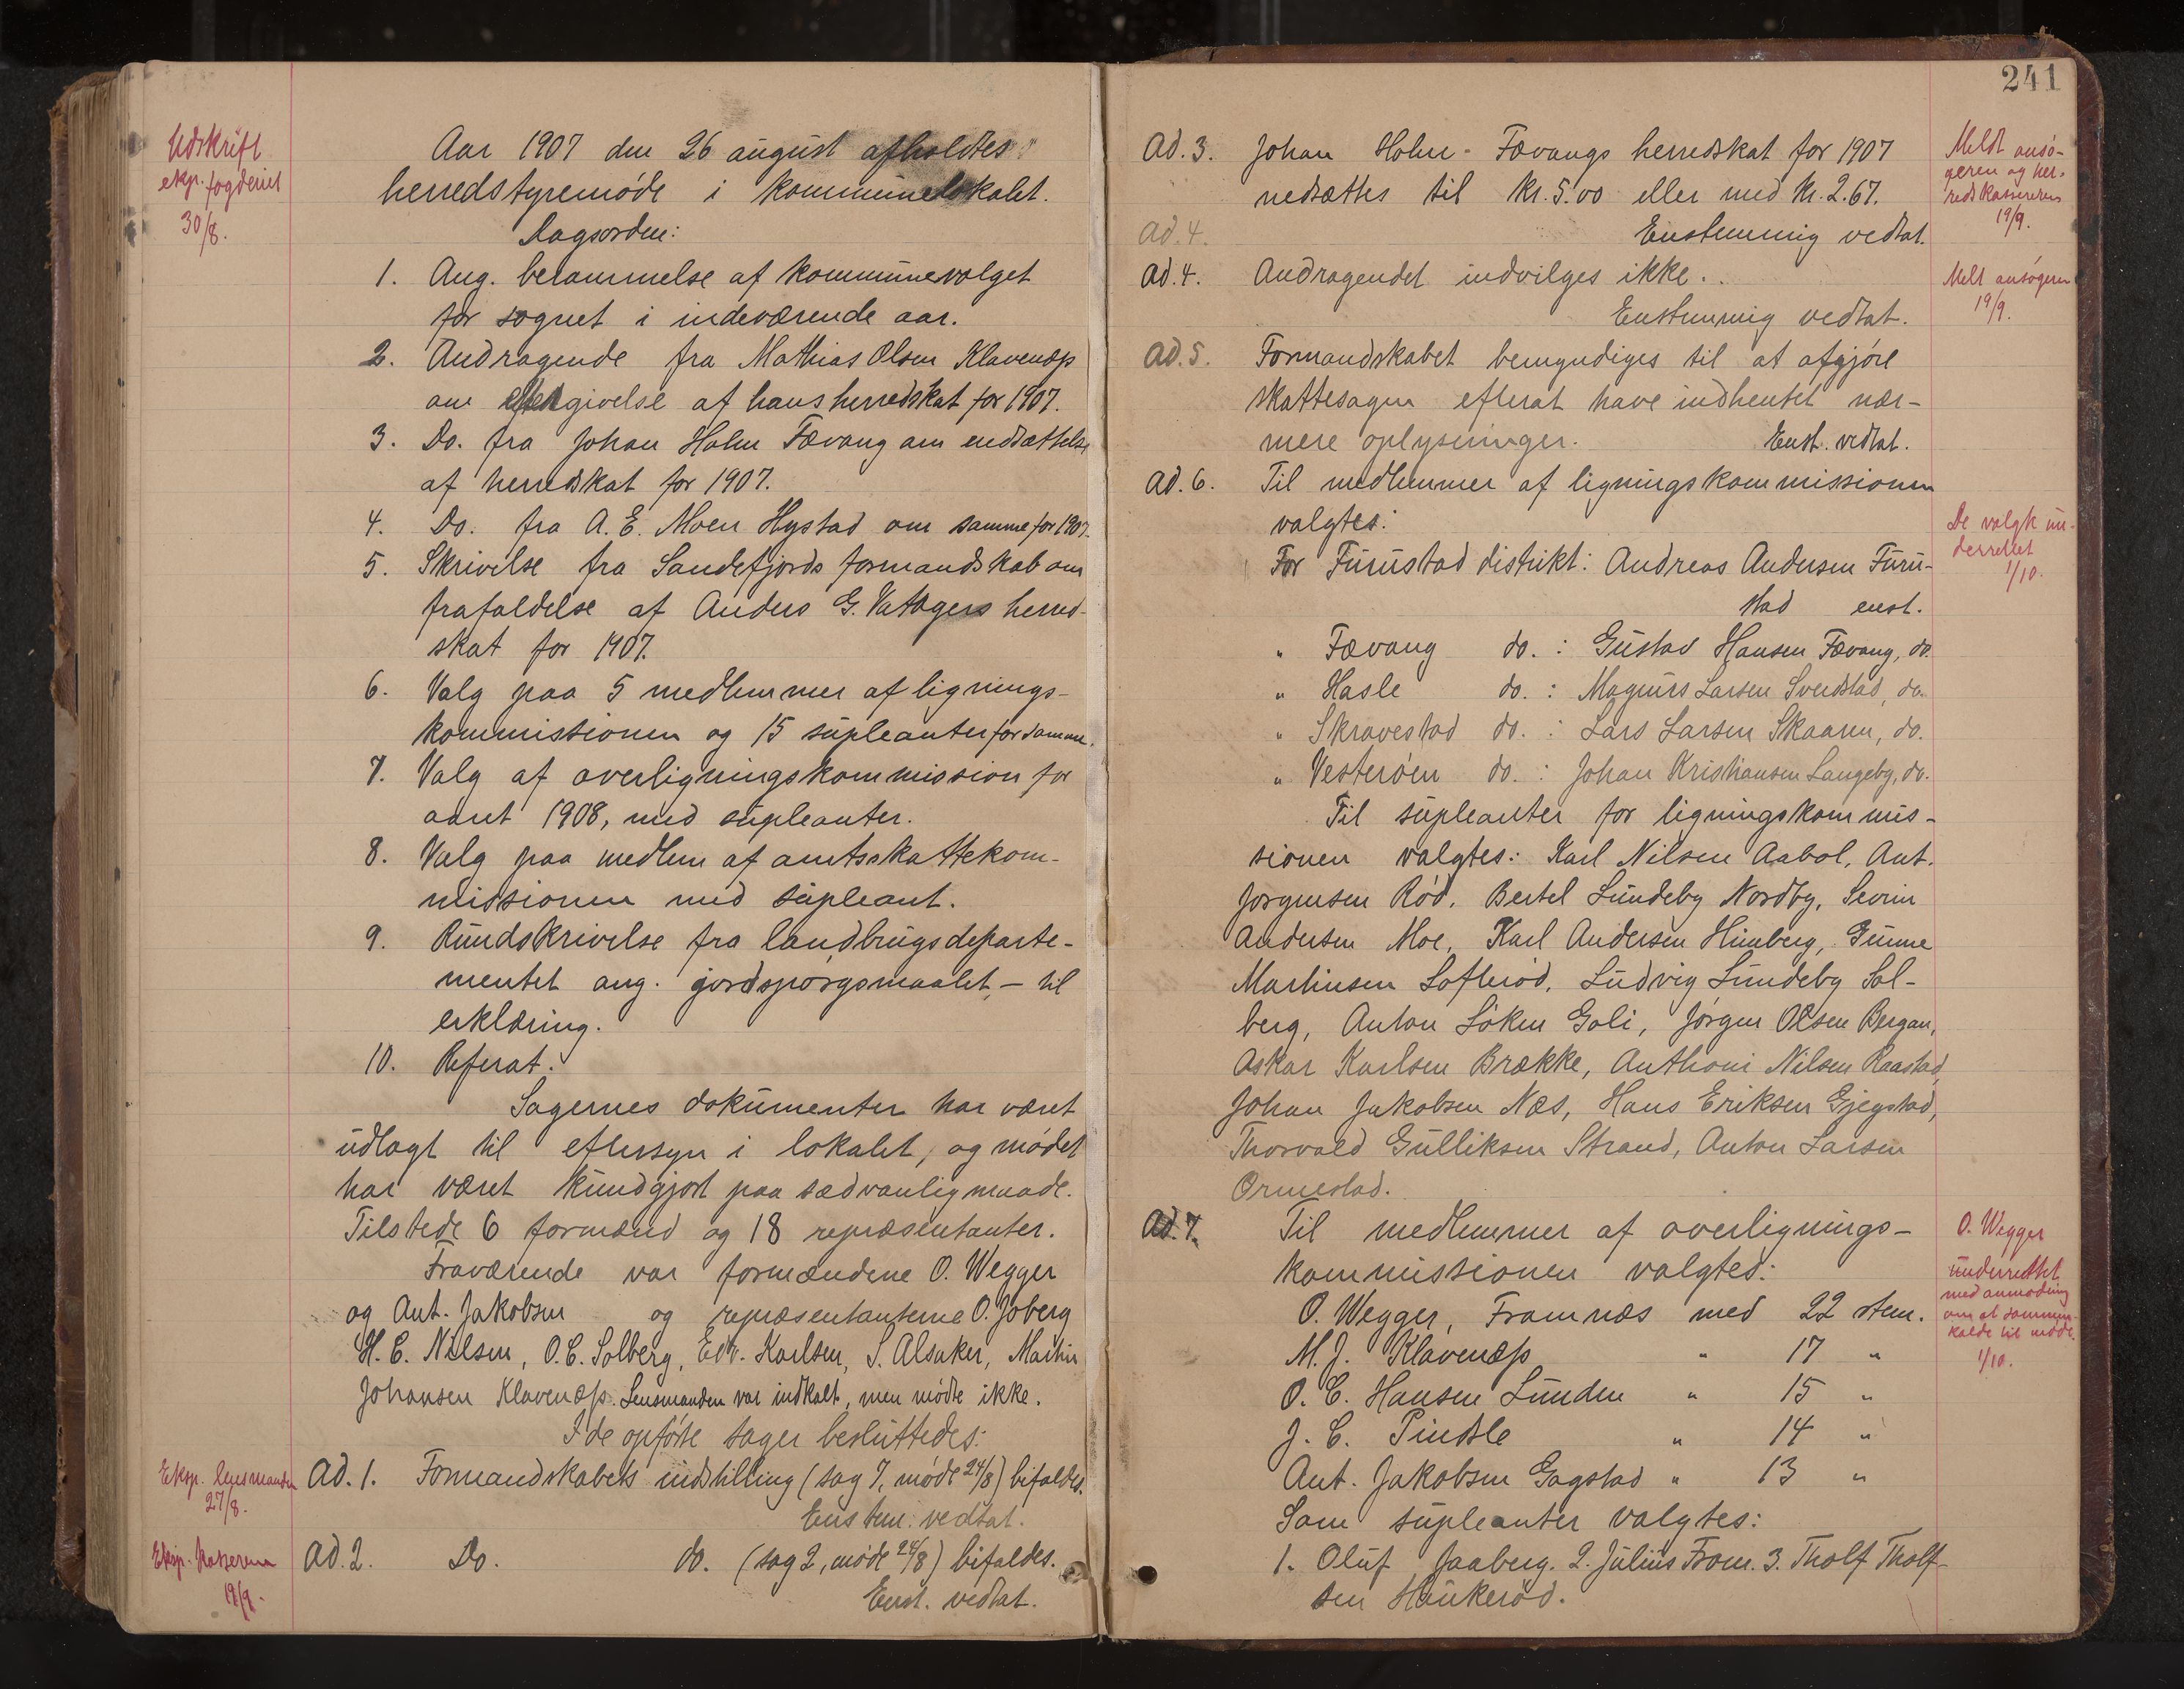 Udskrift
eksp. fogderiet
30/8.
Aar 1907 den 26 august afholdtes
herredstyremøde i kommunelokalet.
Dagsorden:
1. Ang. berammelse af kommunevalget
for sognet i indeværende aar.
2. Andragende fra Mathias Olsen Klavenæs
om eftergivelse af hans herredskat for 1907.
3. Do. fra Johan Holm Fævang om nedsættelse
af herredskat for 1907.
4. Do. fra A. E. Moen Hystad om samme for 1907.
5. Skrivelse fra Sandefjords formandskab om
frafaldelse af Anders G. Vatagers herred-
skat for 1907.
6. Valg paa 5 medlemmer af lignings-
kommissionen og 15 supleanter for samme.
7. Valg af overligningskommission for
aaret 1908, med supleanter.
8. Valg paa medlem af amtsskattekom-
missionen med supleant.
9. Rundskrivelse fra landbrugsdeparte-
mentet ang. jordspørgsmaalet, – til
erklæring.
10. Referat.
Sagernes dokumenter har været
udlagt til eftersyn i lokalet, og mødet
har været kundgjort paa sædvanlig maade.
Tilstede 6 formænd og 18 repræsentanter.
Fraværende var formændene O. Wegger
og Ant. Jakobsen og repræsentanterne O. Joberg
H. C. Nilsen, O. C. Solberg, Edv. Karlsen, S. Alsaker, Martin
Johansen Klavenæs. Lensmanden var indkalt, men mødte ikke.
I de opførte sager besluttedes:
Eksp. lensmanden
27/8.
Ad. 1. Formandskabets indstilling (sag 7, møde 24/8) bifaldes.
Enstem. vedtat.
Eksp. kassereren
19/9.
Ad. 2. Do. do. (sag 2, møde 24/8) bifaldes.
Enst. vedtat.
241
Ad. 3. Johan Holm-Fævangs herredskat for 1907
nedsættes til kr. 5.00 eller med kr. 2.67.
Ad. 4. Enstemmig vedtat.
Meldt ansø-
geren og her-
redskassereren
19/9.
Ad. 4. Andragendet indvilges ikke.
Enstemmig vedtat.
Meldt ansøgeren
19/9.
Ad. 5. Formandskabet bemyndiges til at afgjøre
skattesagen efterat have indhentet nær-
mere oplysninger. Enst. vedtat.
Ad. 6. Til medlemmer af ligningskommissionen
valgtes:
De valgte un-
derrettet
1/10.
For Furustad distrikt: Andreas Andersen Furu-
stad enst.
" Fævang do. : Gustav Hansen Fævang, do.
" Hasle do. : Magnus Larsen Sverdstad, do.
" Skravestad do. : Lars Larsen Skaarn, do.
" Vesterøen do. : Johan Kristiansen Langeby, do.
Til supleanter for ligningskommis-
sionen valgtes: Karl Nilsen Aabol, Ant.
Jørgensen Rød, Bertel Lundeby Nordby, Sevrin
Andersen Moe, Karl Andersen Himberg, Gunne
Martinsen Lofterød, Ludvig Lundeby Sol-
berg, Anton Løken Goli, Jørgen Olsen Bergan,
Oskar Karlsen Brække, Anthoni Nilsen Raastad,
Johan Jakobsen Næs, Hans Eriksen Gjegstad,
Thorvald Gulliksen Strand, Anton Larsen
Ormestad.
Ad. 7. Til medlemmer af overlignings-
kommissionen valgtes:
O. Wegger
underrettet
med anmodning
om at sammen-
kalde til møde.
1/10.
O. Wegger, Framnæs med 22 stem.
M. J. Klavenæs " 17 "
O. C. Hansen Lunden " 15 "
J. C. Pindsle " 14 "
Ant. Jakobsen Gogstad " 13 "
Som supleanter valgtes:
1. Oluf Jaaberg. 2. Julius Fram. 3. Tholf Tholf-
sen Haukerød.